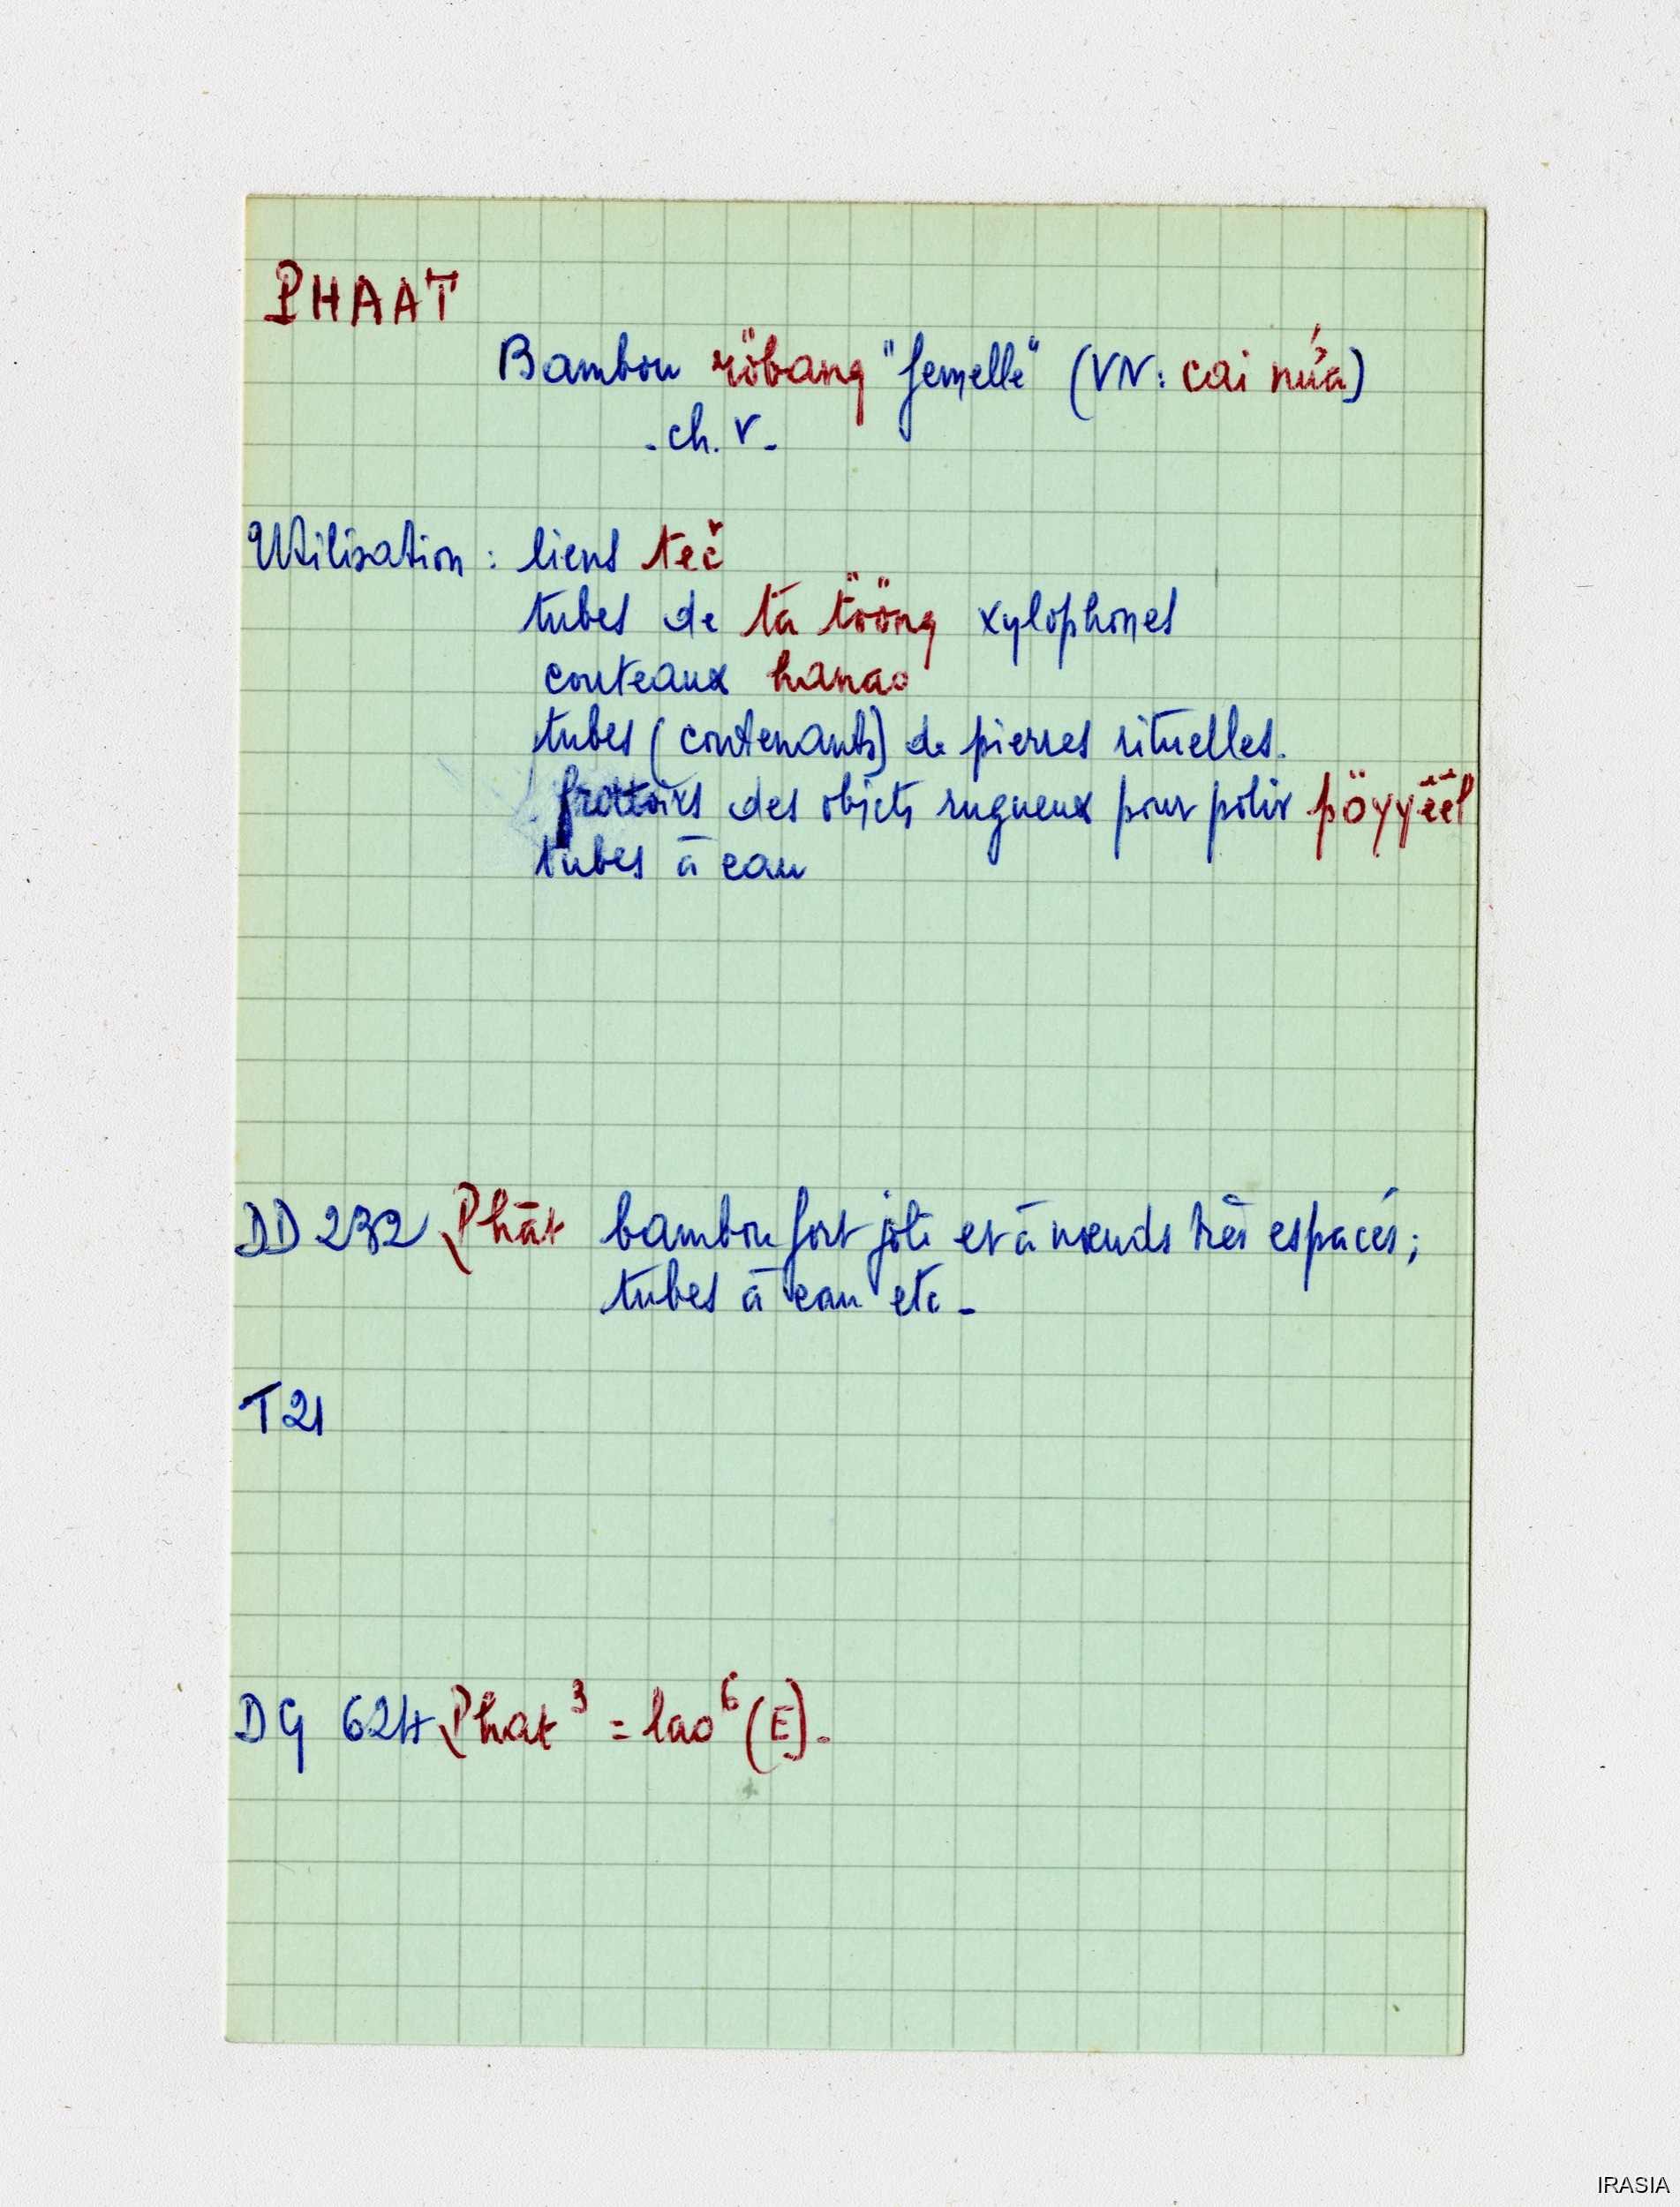 PHAAT
Bambou röbang "femelle" (VN: cai nứa)
- ch. V -
Utilisation : liens teč
tubes de ta tööng xylophones
couteaux hanao
tubes (contenants) de pierres rituelles.
frottoirs des objets rugueux pour polir pöyyëël
tubes à eau
DD 232 Phāt bambou fort joli et à nœuds très espacés;
tubes à eau etc -
T21
DG 624 Phat³ = lao⁶ (E).
IRASIA